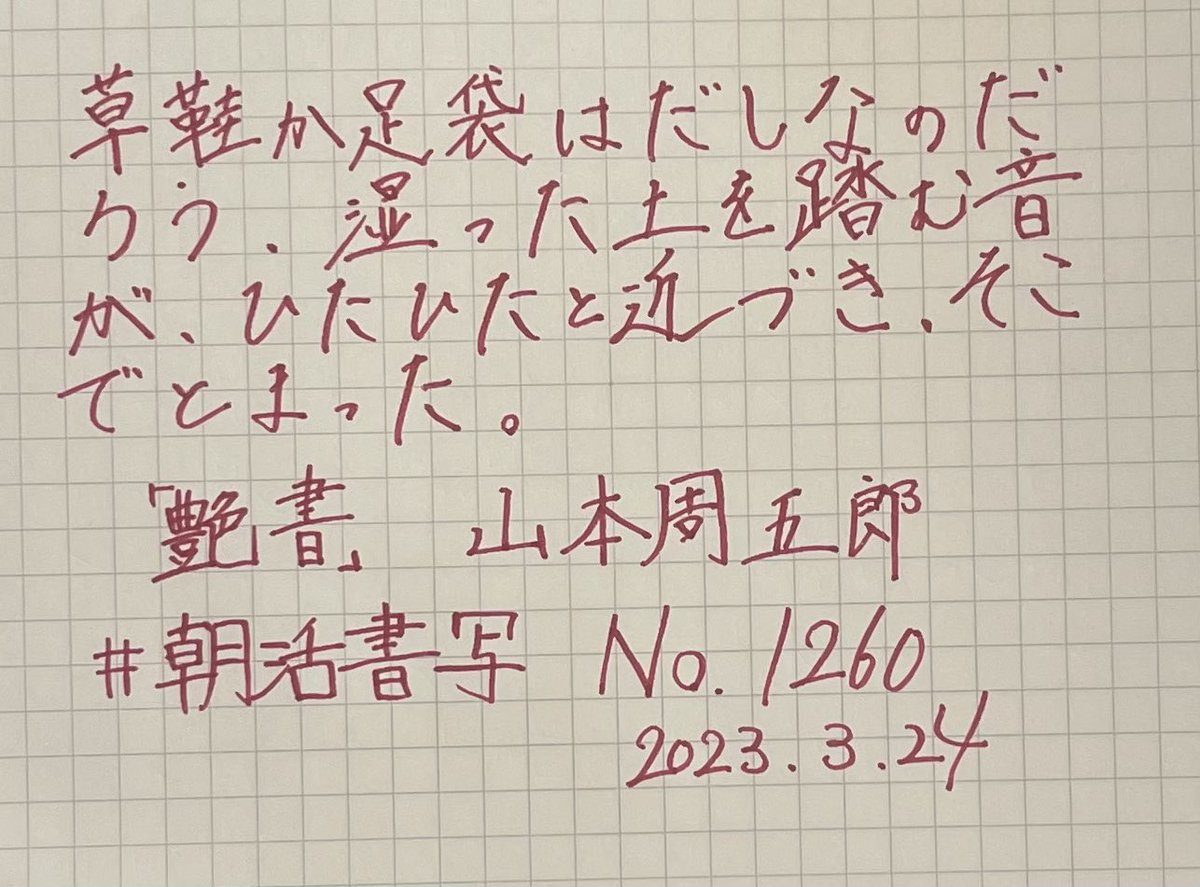 草鞋か足袋はだしなのだ
ろう、湿った土を踏む音
が、ひたひたと近づき、そこ
でとまった。
「艶書」 山本周五郎
#朝活書写 No.1260
2023.3.24